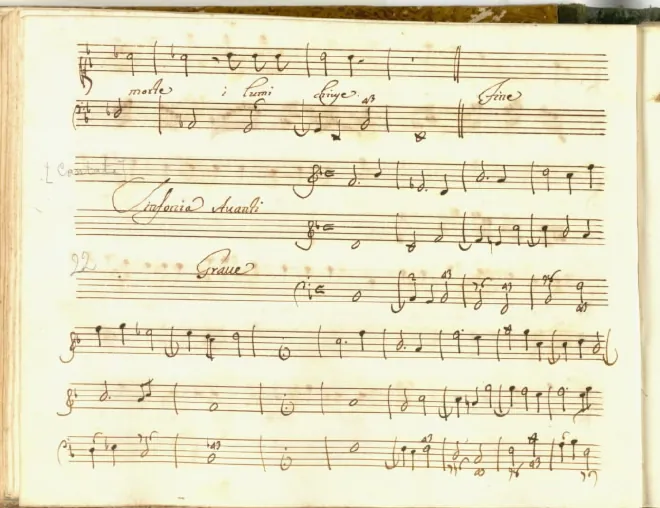 morte i lumi chiuse. Fine
[Cantate]
Sinfonia Auanti
22 Graue